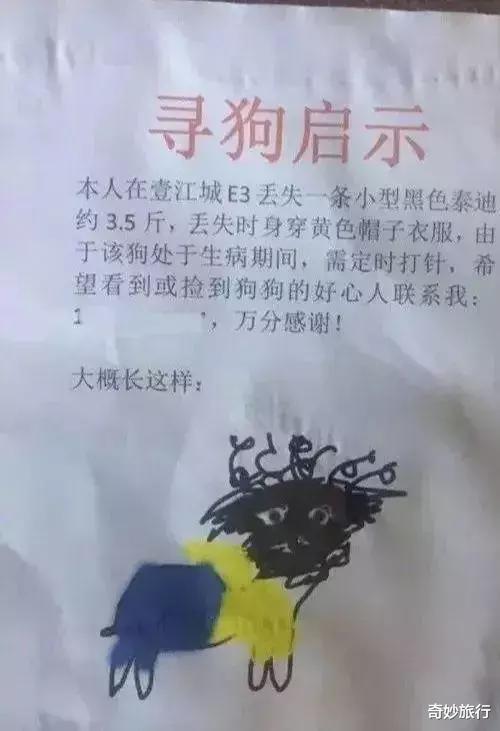 寻狗启示
本人在壹江城E3丢失一条小型黑色泰迪
约3.5斤，丢失时身穿黄色帽子衣服，由
于该狗处于生病期间，需定时打针，希
望看到或捡到狗狗的好心人联系我：
1 ，万分感谢！
大概长这样：
奇妙旅行